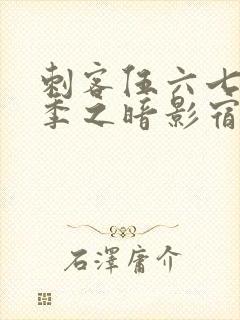 刺客伍六七
季之暗影宿
石澤庸介